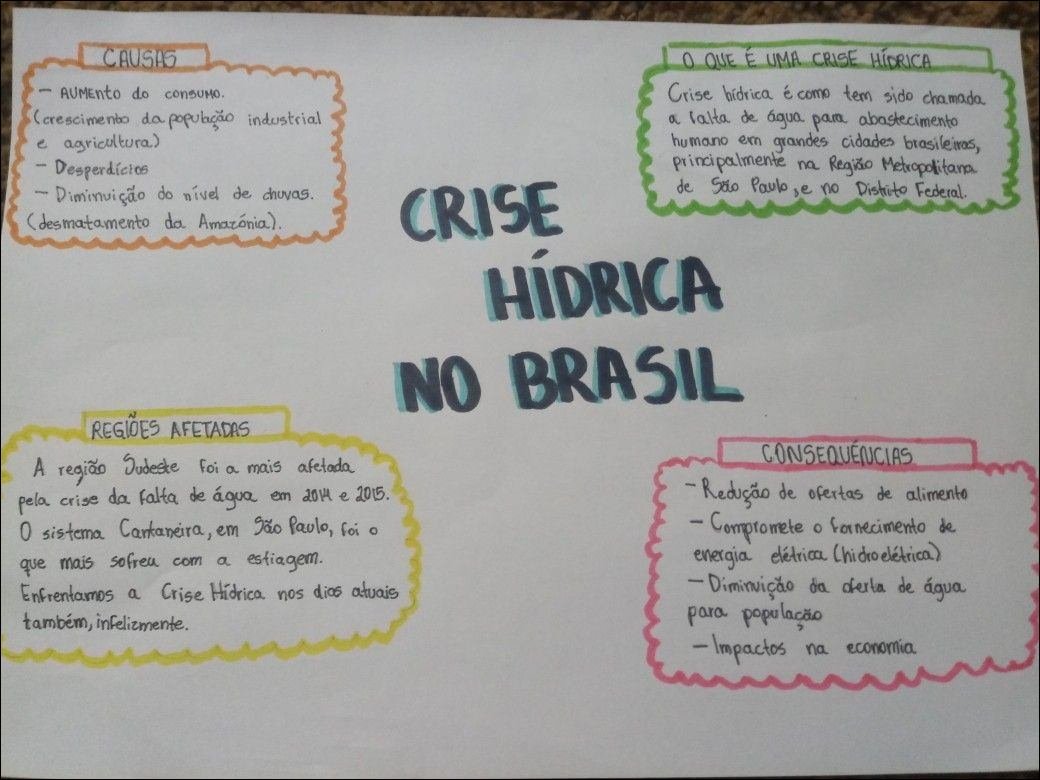 CAUSAS
- AUMENTO do consumo.
(crescimento da população industrial
e agricultura)
- Desperdícios
- Diminuição do nível de chuvas.
(desmatamento da Amazónia).
O QUE É UMA CRISE HÍDRICA
Crise hídrica é como tem sido chamada
a falta de água para abastecimento
humano em grandes cidades brasileiras,
principalmente na Região Metropolitana
de São Paulo, e no Distrito Federal.
CRISE
HÍDRICA
NO BRASIL
REGIÕES AFETADAS
A região Sudeste foi a mais afetada
pela crise da falta de água em 2014 e 2015.
O sistema Cantaneira, em São Paulo, foi o
que mais sofreu com a estiagem.
Enfrentamos a Crise Hídrica nos dias atuais
também, infelizmente.
CONSEQUÊNCIAS
- Redução de ofertas de alimento
- Compromete o fornecimento de
energia elétrica (hidroelétrica)
- Diminuição da oferta de água
para população
- Impactos na economia